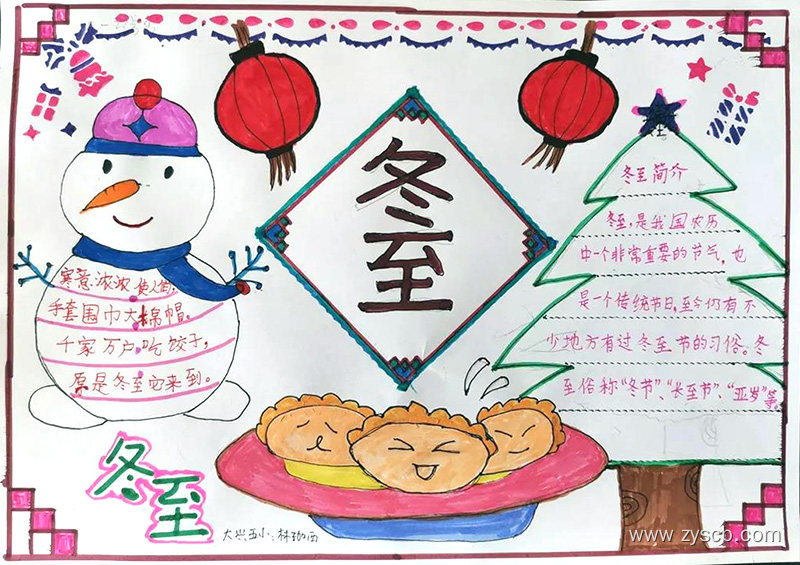 冬至
寒意浓浓使人愁,
手套围巾大棉帽。
千家万户吃饺子,
原是冬至它来到。
冬至简介
冬至,是我国农历
中一个非常重要的节气,也
是一个传统节日,至今仍有不
少地方有过冬至节的习俗。冬
至俗称“冬节”、“长至节”、“亚岁”等。
冬至
大兴五小:林
www.zyscb.com